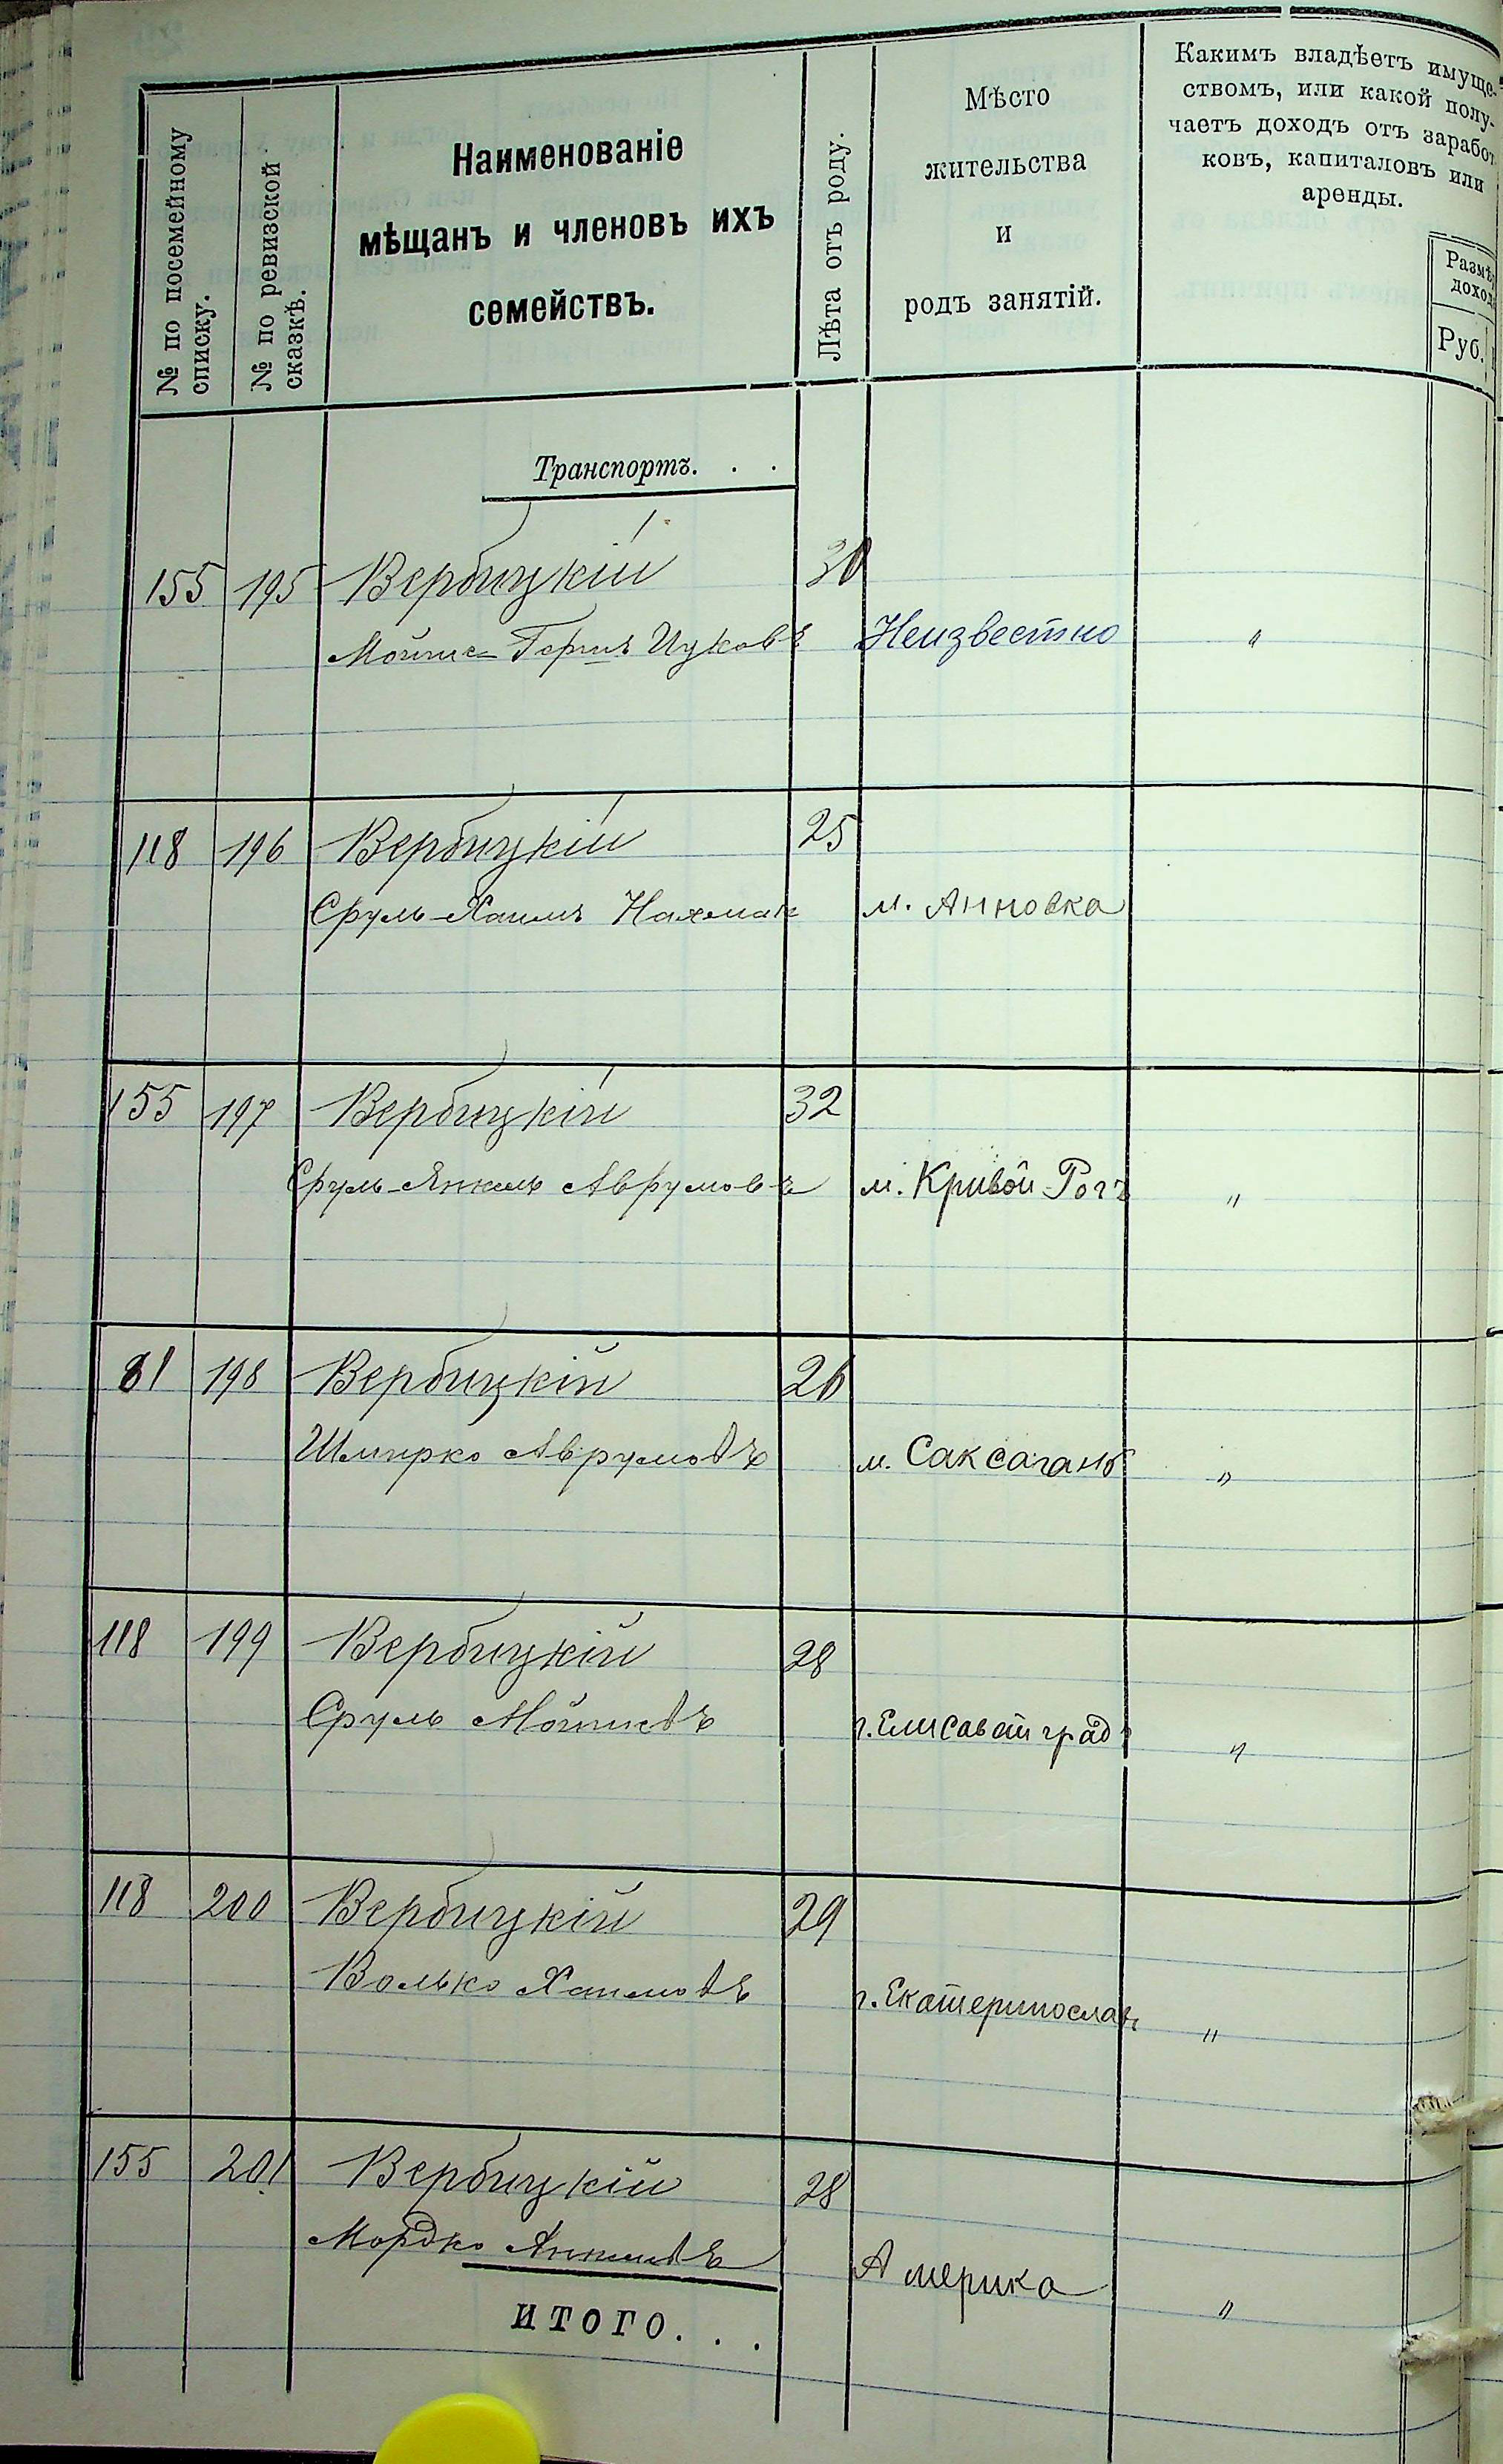 № по посемейному
списку.
№ по ревизской
сказкѣ.
Наименованіе
мѣщанъ и членовъ ихъ
семействъ.
Лѣта отъ роду.
Мѣсто
жительства
и
родъ занятій.
Какимъ владѣетъ имуще-
ствомъ, или какой полу-
чаетъ доходъ отъ заработ
ковъ, капиталовъ или
аренды.
Размѣ
доход
Руб.
Транспортъ. . .
155 195 Вербицкій 30
Мойше-Гершъ Ицковъ Неизвестно "
118 196 Вербицкій 25
Сруль-Хаимъ Нахман м. Анновка
155 197 Вербицкій 32
Сруль-Янкель Аврумовъ м. Кривой-Рогъ "
81 198 Вербицкій 26
Шмирко Аврумовъ м. Саксагань "
118 199 Вербицкій 28
Сруль Мойшевъ г. Елисаветград "
118 200 Вербицкій 29
Волько Хаимовъ г. Екатеринославъ "
155 201 Вербицкій 28
Мордко Янкелевъ Америка "
итого. . .